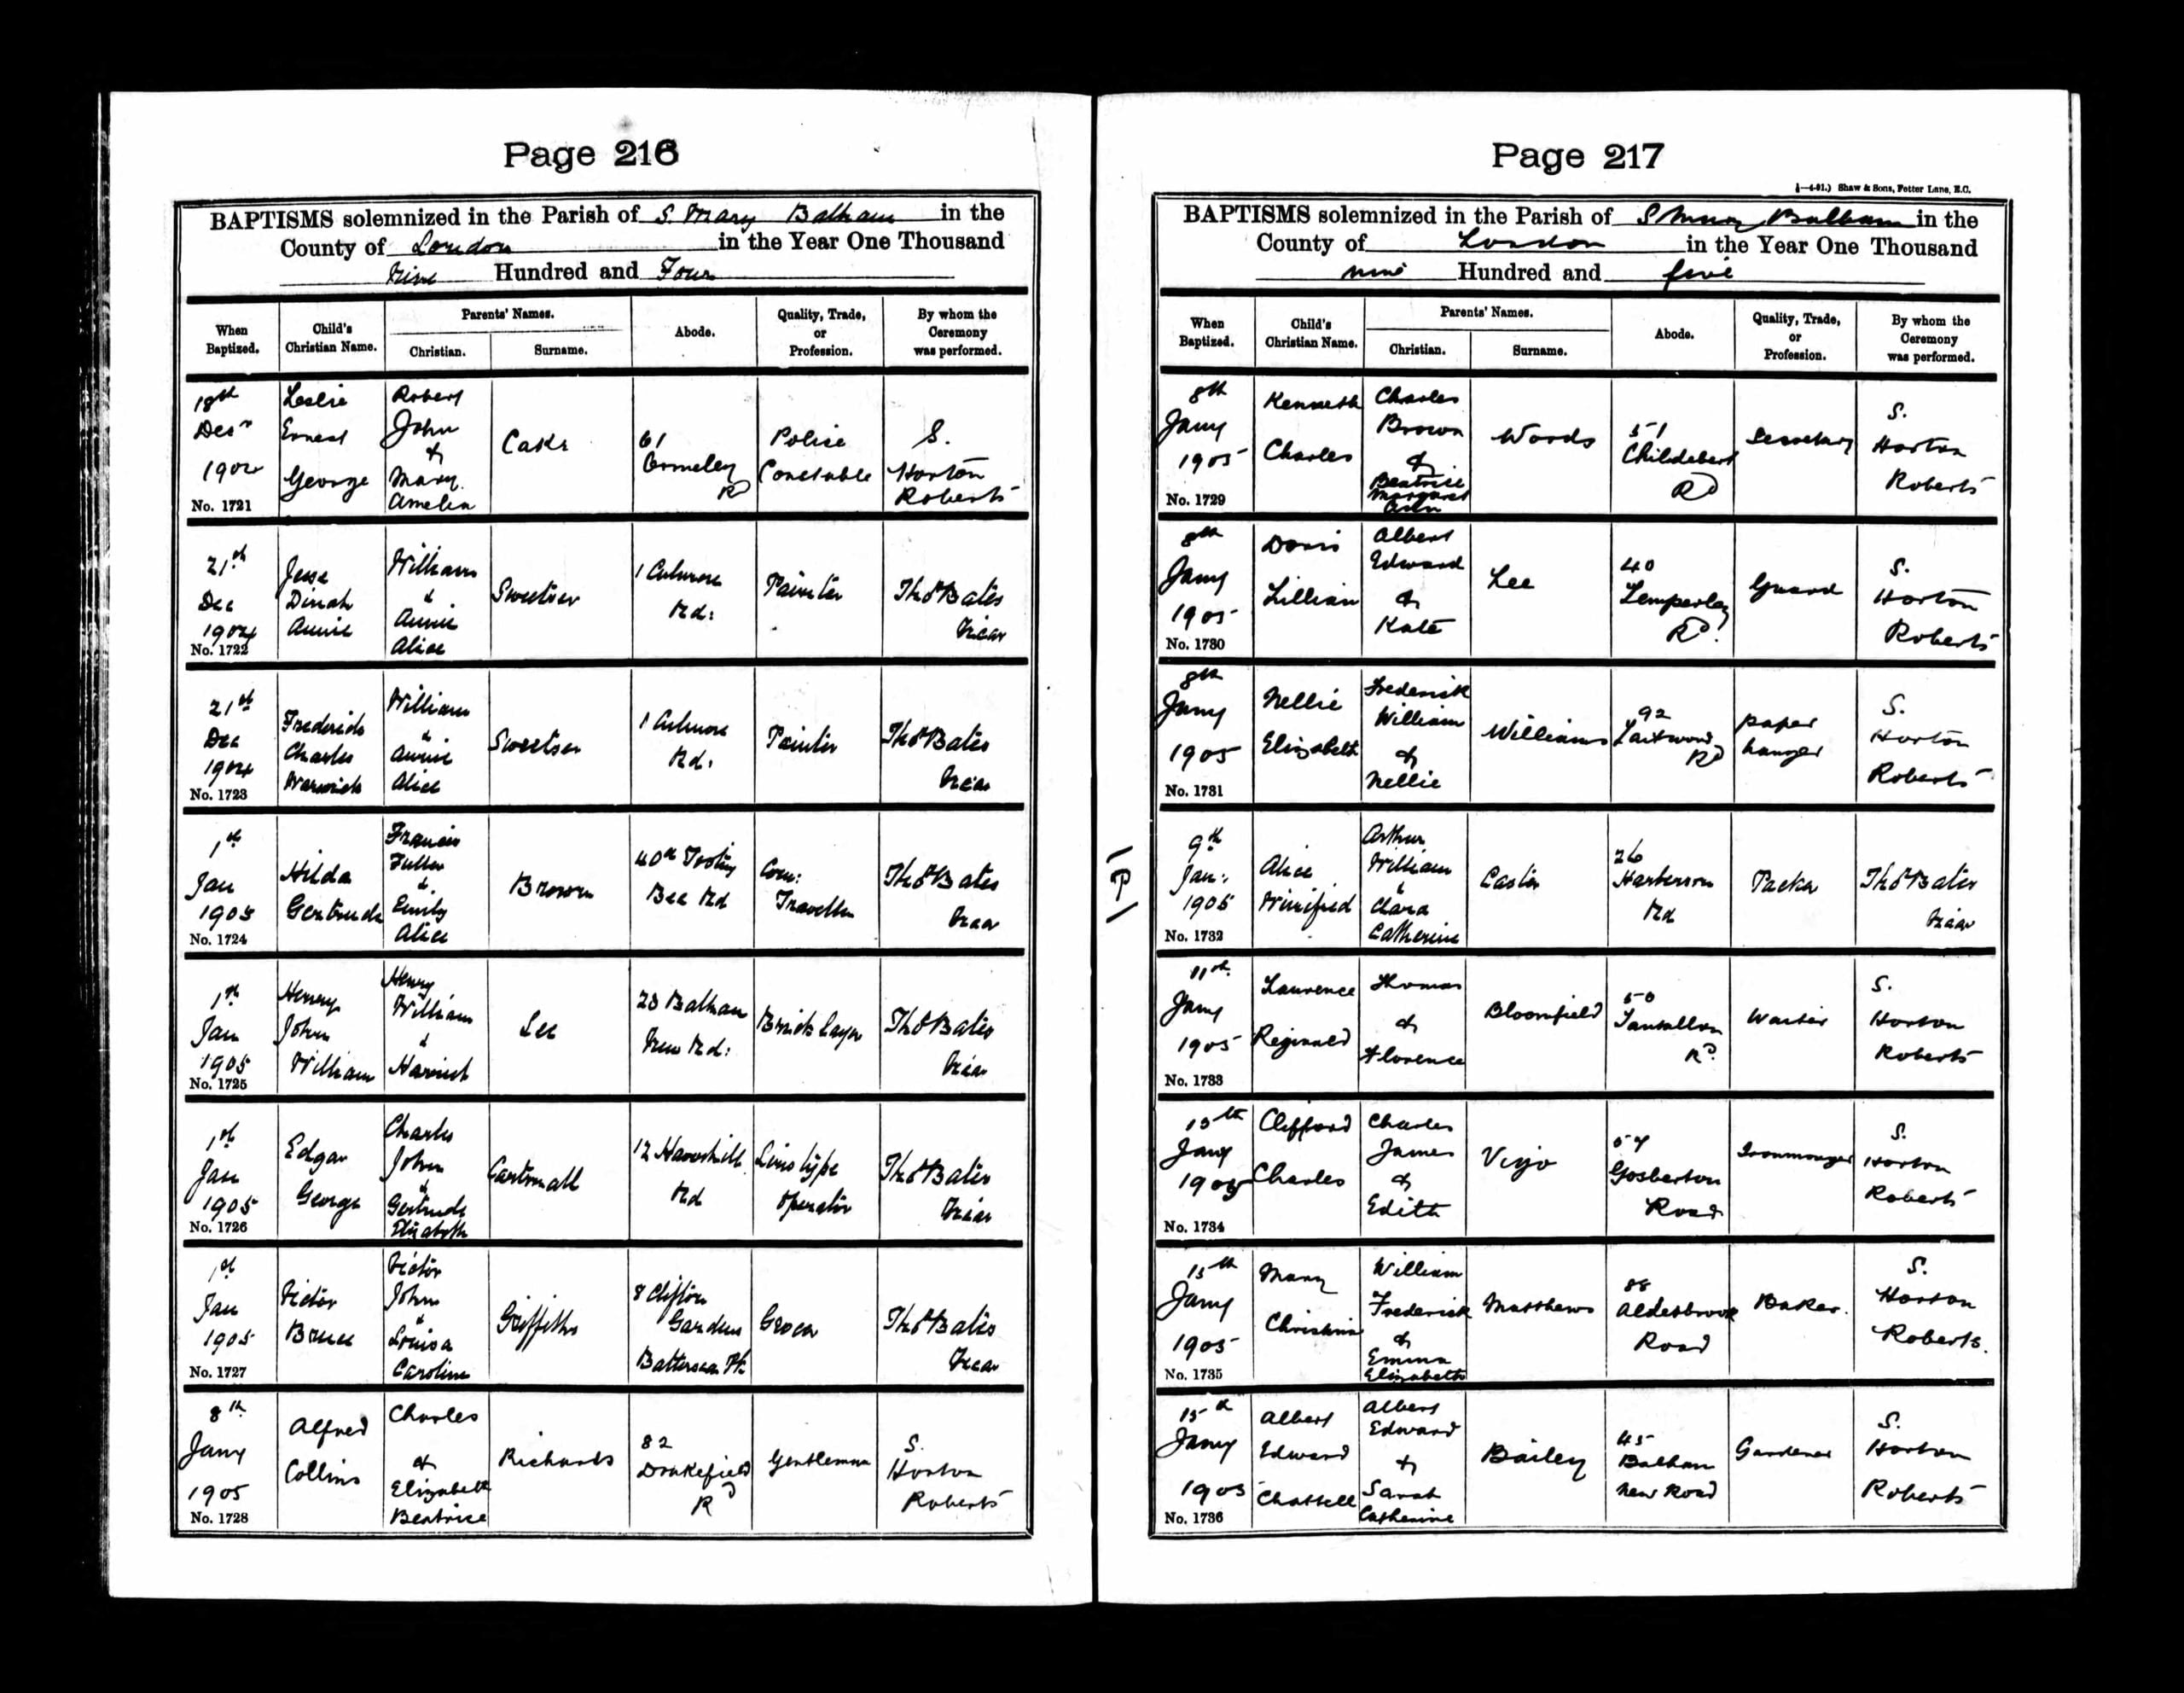 Page 216
BAPTISMS solemnized in the Parish of S. Mary Balham in the
County of London in the Year One Thousand
Nine Hundred and Four
When Baptized.
Child's Christian Name.
Parents' Names.
Christian.
Surname.
Abode.
Quality, Trade, or Profession.
By whom the Ceremony was performed.
18th Decr 1904 No. 1721
Leslie Ernest George
Robert John & Mary Amelia
61 Ormeley Rd
Police Constable
S. Horton Roberts
21st Dec 1904 No. 1722
Dinah Annie
William & Annie Alice
Sweetser
1 Culmore Rd:
Painter
Thos Bates Vicar
21st Dec 1904 No. 1723
Frederick Charles Warwick
William & Annie Alice
Sweetser
1 Culmore Rd:
Painter
Thos Bates Vicar
1st Jan 1905 No. 1724
Hilda Gertrude
Francis Fuller & Emily Alice
Brown
40a Tooting Bec Rd
Com: Traveller
Thos Bates Vicar
1st Jan 1905 No. 1725
Henry John William
Henry William & Harriet
Lee
23 Balham New Rd:
Brick Layer
Thos Bates Vicar
1st Jan 1905 No. 1726
Edgar George
Charles John & Gertrude Elizabeth
Cartmall
12 Haverhill Rd
Linotype Operator
Thos Bates Vicar
1st Jan 1905 No. 1727
Victor Bruce
Victor John & Louisa Caroline
Griffiths
8 Clifton Gardens Battersea Pk.
Grocer
Thos Bates Vicar
8th Jany 1905 No. 1728
Alfred Collins
Charles & Elizabeth Beatrice
Richards
82 Drakefield Rd
Gentleman
S. Horton Roberts
Page 217
Shaw & Sons, Fetter Lane, E.C.
BAPTISMS solemnized in the Parish of S Mary Balham in the
County of London in the Year One Thousand
nine Hundred and five
When Baptized.
Child's Christian Name.
Parents' Names.
Christian.
Surname.
Abode.
Quality, Trade, or Profession.
By whom the Ceremony was performed.
8th Jany 1905 No. 1729
Kenneth Charles
Charles Brown & Beatrice Margaret Ann
Woods
51 Childebert Rd
Secretary
S. Horton Roberts
8th Jany 1905 No. 1730
Doris Lillian
Albert Edward & Kate
Lee
40 Temperley Rd.
Guard
S. Horton Roberts
8th Jany 1905 No. 1731
Nellie Elizabeth
Frederick William & Nellie
Williams
92 Laitwood Rd
paper hanger
S. Horton Roberts
9th Jan: 1905 No. 1732
Alice Winifred
Arthur William & Clara Catherine
Caster
26 Harberson Rd
Packer
Thos Bates Vicar
11th Jany 1905 No. 1733
Laurence Reginald
Thomas & Florence
Bloomfield
50 Tantallon Rd.
Waiter
S. Horton Roberts
15th Jany 1905 No. 1734
Clifford Charles
Charles James & Edith
54 Gosberton Road
Ironmonger
S. Horton Roberts
15th Jany 1905 No. 1735
Mary Christina
William Frederick & Emma Elizabeth
Matthews
88 Aldesbrook Road
Baker.
S. Horton Roberts.
15th Jany 1905 No. 1736
Albert Edward Chattell
Albert Edward & Sarah Catherine
Bailey
45 Balham New Road
Gardener
S. Horton Roberts